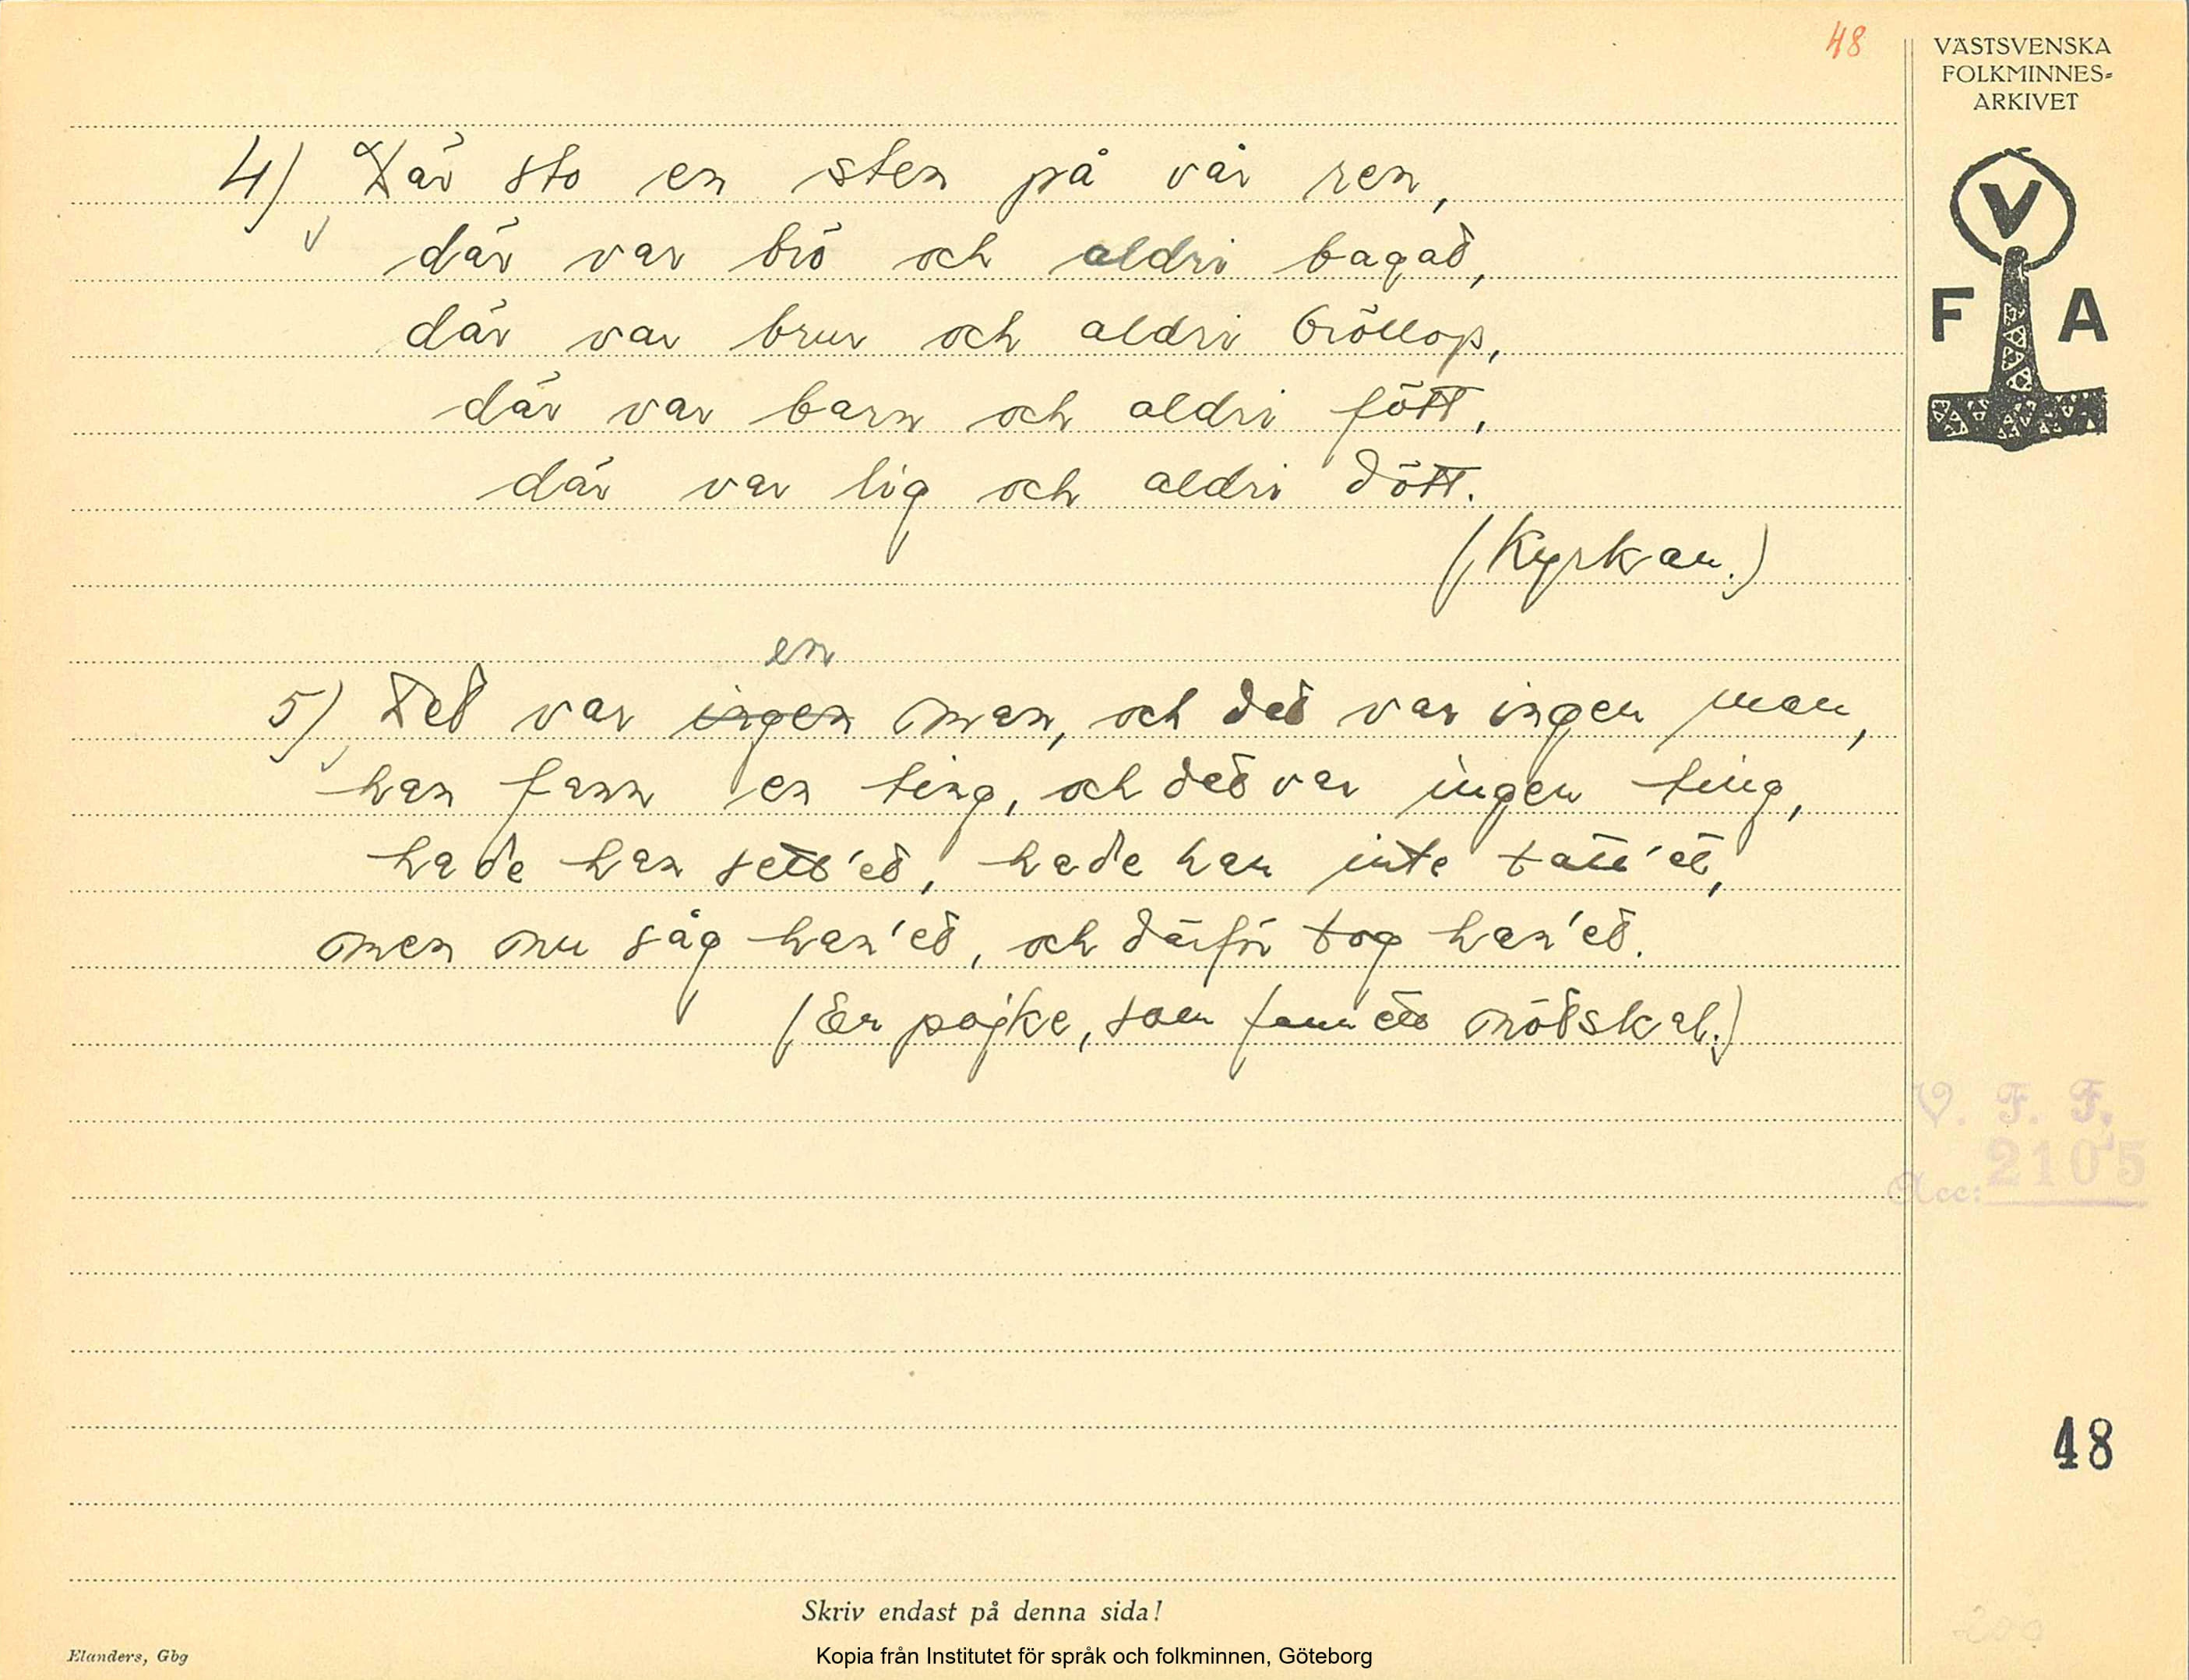 48
VÄSTSVENSKA
FOLKMINNES-
ARKIVET
V
F A
4) Där sto en sten på vår ren,
där var brö och aldri bagad,
där var brur och aldri bröllop,
där var barn och aldri fött,
där var lig och aldri dött.
(Kyrkan.)
en
5) Det var ingen man, och det var ingen man,
han fann en ting, och det var ingen ting,
hade han sett'et, hade han inte tatt'et,
men nu såg han'et, och därför tog han'et.
(En pojke, som fann ett nötskal.)
V. F. F.
Acc: 2105
48
200
Skriv endast på denna sida!
Elanders, Gbg
Kopia från Institutet för språk och folkminnen, Göteborg